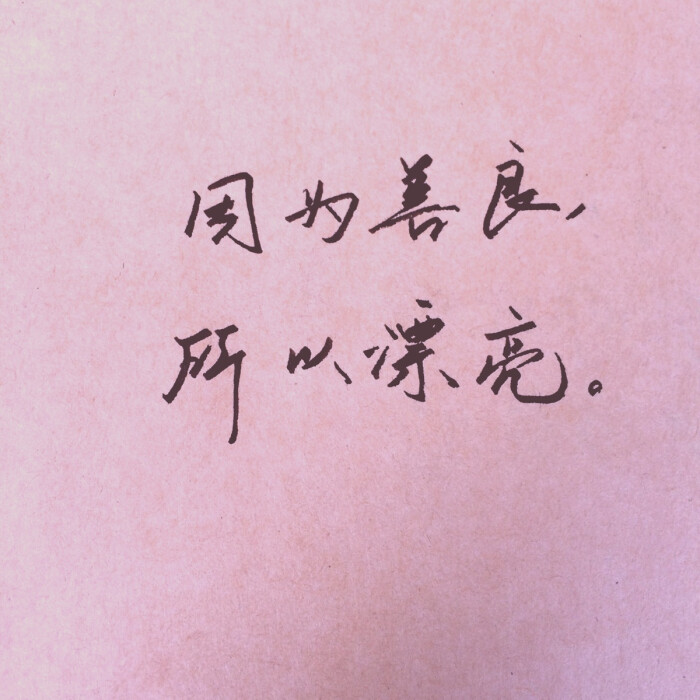 因为善良,
所以漂亮。